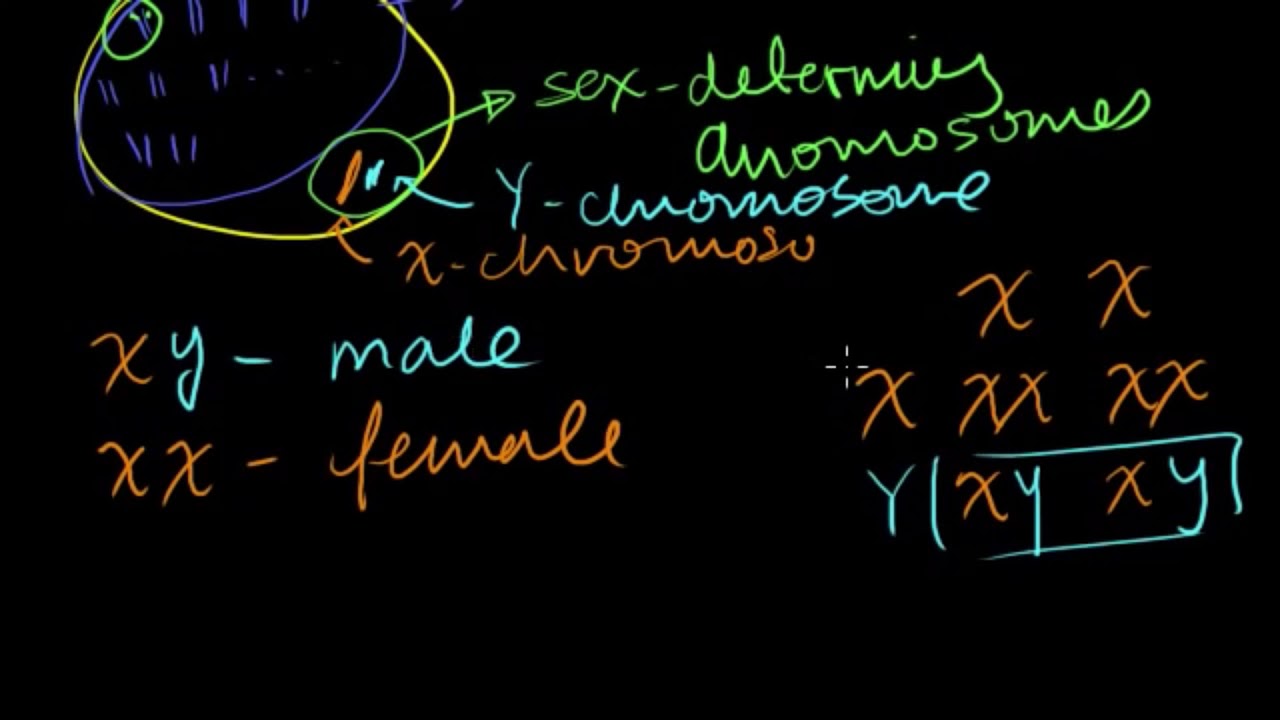 sex-determining
chromosomes
Y-chromosome
x-chromoso
xy - male
xx - female
x x
x xx xx
Y xy xy